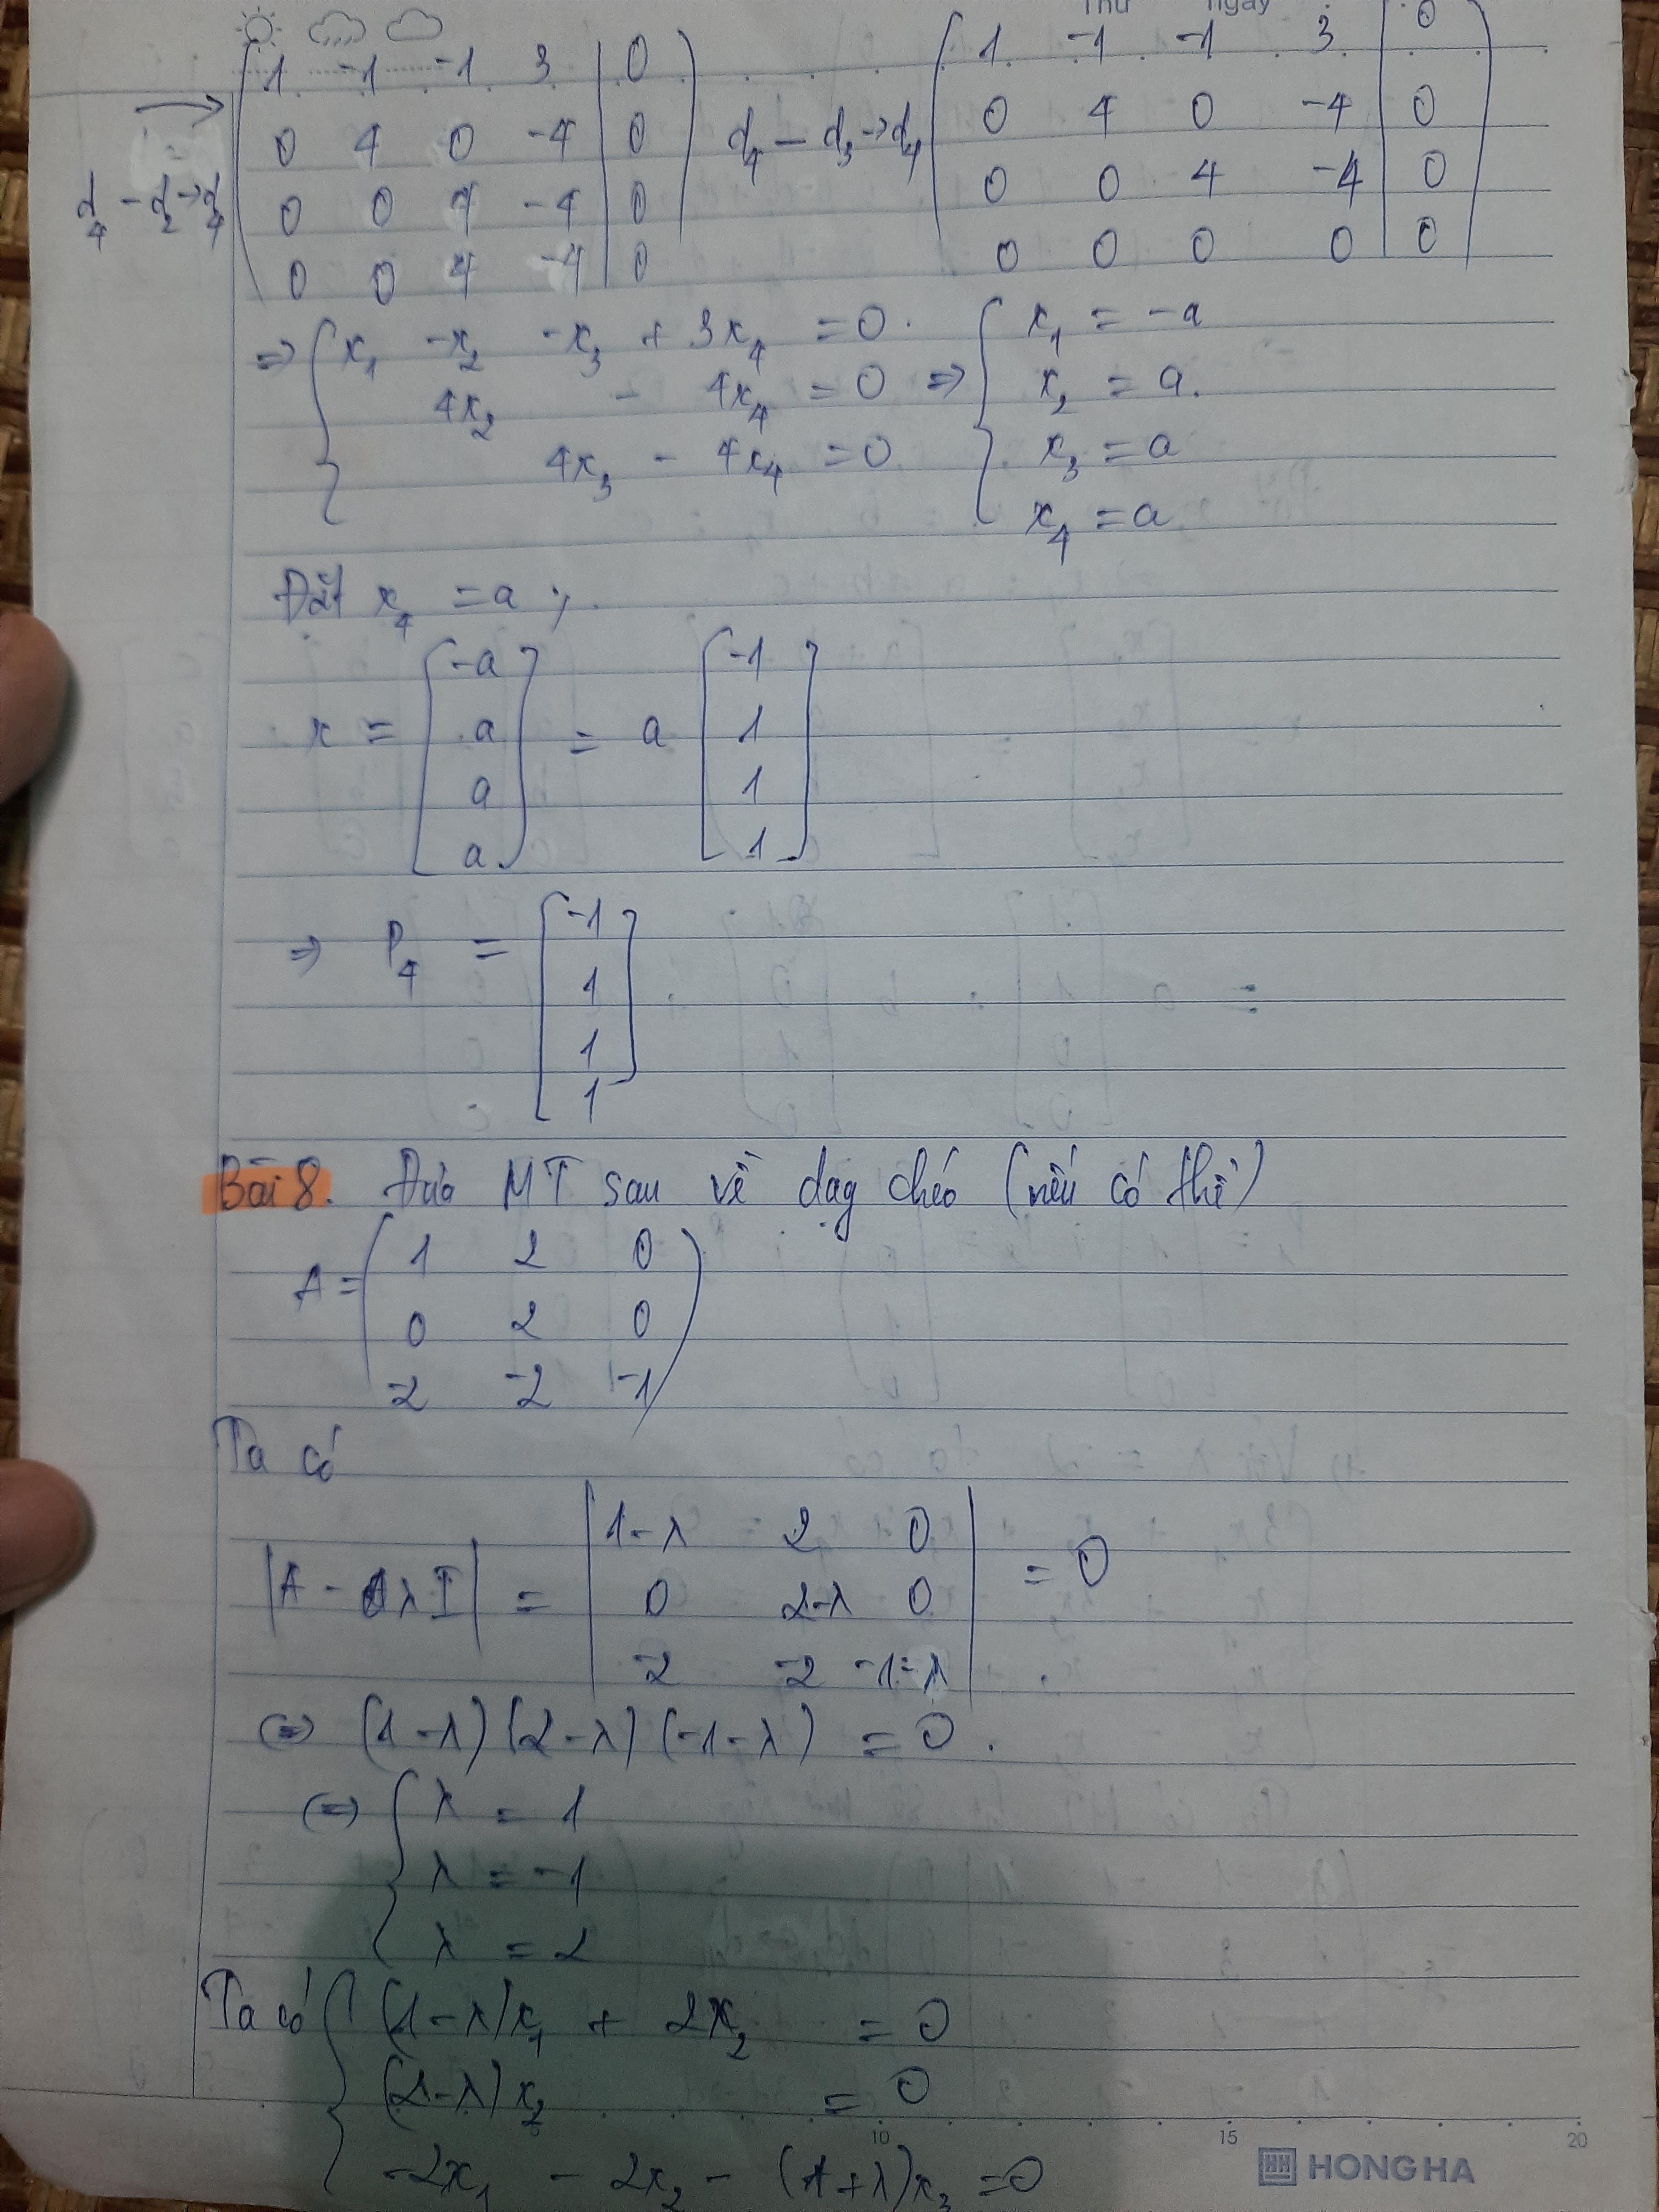 Thứ ngày
1 -1 -1 3 | 0
0 4 0 -4 | 0
0 0 4 -4 | 0
0 0 4 -4 | 0
d₄ - d₂ → d₄
d₄ - d₃ → d₄
1 -1 -1 3 | 0
0 4 0 -4 | 0
0 0 4 -4 | 0
0 0 0 0 | 0
⇒ { x₁ - x₂ - x₃ + 3x₄ = 0
4x₂ - 4x₄ = 0
4x₃ - 4x₄ = 0
⇒ { x₁ = -a
x₂ = a.
x₃ = a
x₄ = a
Đặt x₄ = a;
x = [-a a a a] = a [-1 1 1 1]
⇒ P₄ = [-1 1 1 1]
Bài 8. Đưa MT sau về dạg chéo (nếu có thể)
A = ( 1 2 0
0 2 0
-2 -2 -1 )
Ta có
|A - λI| = | 1-λ 2 0
0 2-λ 0
-2 -2 -1-λ | = 0
(=) (1-λ)(2-λ)(-1-λ) = 0.
(=) { λ = 1
λ = -1
λ = 2
Ta có { (1-λ)x₁ + 2x₂ = 0
(2-λ)x₂ = 0
-2x₁ - 2x₂ - (1+λ)x₃ = 0
10 15 20
HH HONG HA